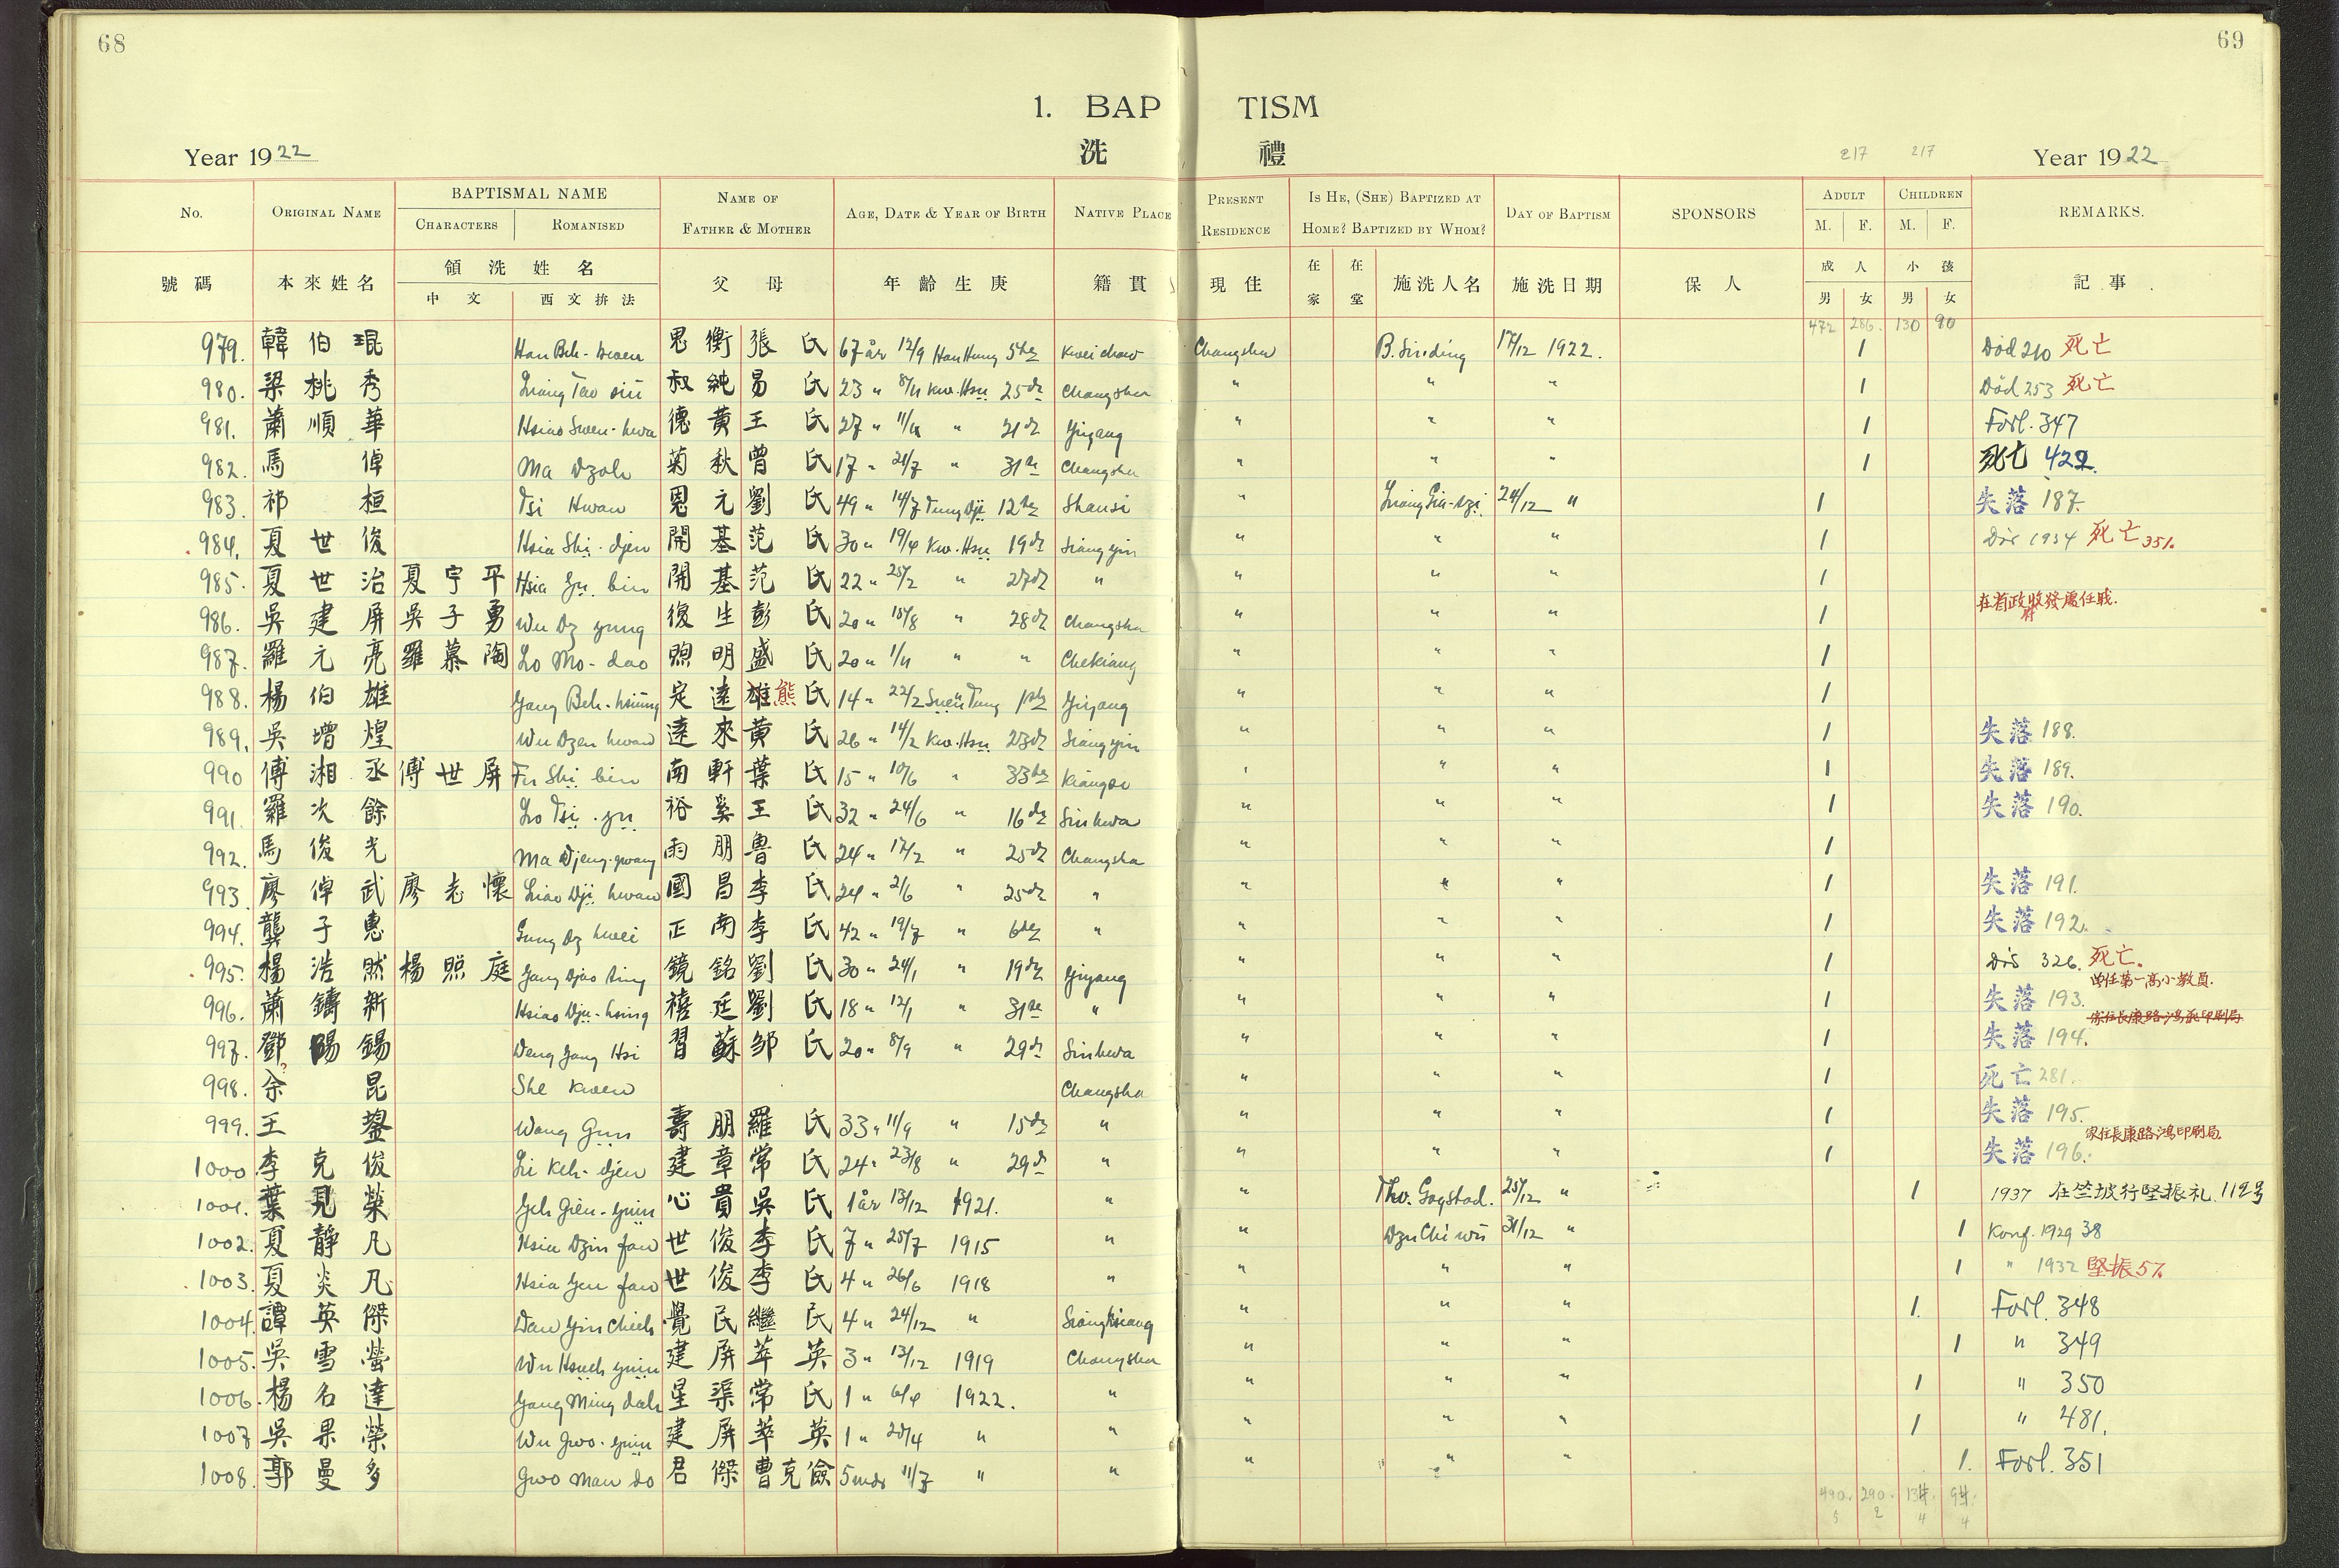 68
69
1. BAP TISM
洗 禮
Year 1922
217 217
Year 1922
No. ORIGINAL NAME BAPTISMAL NAME CHARACTERS ROMANISED NAME OF FATHER & MOTHER AGE, DATE & YEAR OF BIRTH NATIVE PLACE PRESENT RESIDENCE IS HE, (SHE) BAPTIZED AT HOME? BAPTIZED BY WHOM? DAY OF BAPTISM SPONSORS ADULT M. F. CHILDREN M. F. REMARKS.
號碼 本來姓名 領洗姓名 中文 西文拚法 父母 年齡生庚 籍貫 現住 在家 在堂 施洗人名 施洗日期 保人 成人 男 女 小孩 男 女 記事
472 286. 130 90
979. 韓伯琨 Han Beh-kwen 思衡 張氏 67 år 12/9 Han Hung 5te Kweichow Changsha B. Sinding 17/12 1922. 1 Död 210 死亡
980. 梁桃秀 Liang Tao siu 叔純 易氏 23 " 8/11 Kw. Hsu 25de Changsha " " " 1 Död 253 死亡
981. 蕭順華 Hsiao Swen-hwa 德黃 王氏 27 " 11/11 " 21de Yiyang " " " 1 Forl. 347
982. 馬倬 Ma Dzoh 菊秋 曾氏 17 " 21/7 " 31te Changsha " " " 1 死亡 422.
983. 祁桓 Tsi Hwan 恩元 劉氏 49 " 14/7 Tung Dji 12te Shansi " Liang Gia-dzi 24/12 " 1 失落 187.
984. 夏世俊 Hsia Shi-djen 開基 范氏 30 " 19/4 Kw. Hsu 19de Siangyin " " " 1 Dös 1934 死亡 351.
985. 夏世治 夏宇平 Hsia Yu bin 開基 范氏 22 " 25/2 " 27de " " " " 1
986. 吳建屏 吳子勇 Wu Dz yung 復生 彭氏 20 " 18/8 " 28de Changsha " " " 1 在省政府收發處任職.
987. 羅元亮 羅慕陶 Lo Mo-dao 煦明 盛氏 20 " 1/11 " " Chekiang " " " 1
988. 楊伯雄 Yang Beh-hsiung 定遠 雄熊氏 14 " 22/2 Suen Tung 1ste Yiyang " " " 1
989. 吳增煌 Wu Dzen hwan 遠來 黃氏 26 " 14/2 Kw. Hsu 23de Siangyin " " " 1 失落 188.
990 傅湘丞 傅世屏 Fu Shi bin 南軒 葉氏 15 " 10/6 " 33te Kiangsi " " " 1 失落 189.
991. 羅次餘 Lo Tsi-yu 裕奚 王氏 32 " 24/6 " 16de Sinhwa " " " 1 失落 190.
992. 馬俊光 Ma Djeng-gwang 雨朋 魯氏 24 " 17/2 " 25de Changsha " " " 1
993. 廖倬武 廖志懷 Liao Dji hwan 國昌 李氏 24 " 2/6 " 25de " " " " 1 失落 191.
994. 龔子惠 Gung Dz hwei 正南 李氏 42 " 19/7 " 6te " " " " 1 失落 192.
995. 楊浩然 楊照庭 Yang Djao ting 鏡銘 劉氏 30 " 24/1 " 19de Yiyang " " " 1 Dös 326. 死亡.
996. 蕭鑄新 Hsiao Dju-hsing 禧廷 劉氏 18 " 12/1 " 31te " " " " 1 失落 193. 曾任第一高小教員.
997. 鄧暘錫 Deng Yang Hsi 習蘇 邹氏 20 " 8/9 " 29de Sinhwa " " " 1 失落 194.
998. 余昆 ? She Kwen Changsha " " " 1 死亡 281.
999. 王鋆 Wang Gun 壽朋 羅氏 33 " 11/9 " 15de " " " " 1 失落 195.
1000. 李克俊 Li Keh-djen 建章 常氏 24 " 23/8 " 29de " " " " 1 失落 196. 家住長康路鴻印刷局.
1001. 葉見榮 Yeh Gien-yuin 心貴 吳氏 1 år 13/12 1921. " " Tho. Gogstad. 25/12 " 1 1937 在竺坡行堅振礼. 112号
1002. 夏靜凡 Hsia Dzin fan 世俊 李氏 7 " 25/7 1915 " " Dzu Chi wu 31/12 " 1 Konf. 1929 38
1003. 夏炎凡 Hsia Yen fan 世俊 李氏 4 " 26/6 1918 " " " " 1 " 1932 堅振57.
1004. 譚英傑 Dan Yin Chieh 覺民 繼民 4 " 24/12 " Sianghsiang " " " 1. Forl. 348
1005. 吳雪螢 Wu Hsueh yuin 建屏 萃英 3 " 13/12 1919 Changsha " " " 1 " 349
1006. 楊名達 Yang Ming dah 星渠 常氏 1 " 6/4 1922. " " " " 1 " 350
1007 吳果榮 Wu Gwo-yuin 建屏 萃英 1 " 20/4 " " " " " 1 " 481.
1008. 郭曼多 Gwo Man do 君傑 曹克儉 5 mdr 11/7 " " " " " 1. Forl. 351
490. 290. 134. 94.
5 2 4 4